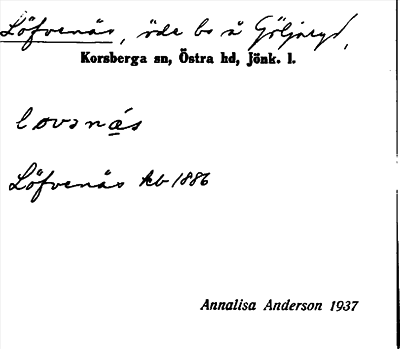 Löfvenäs, öde bs å Göljaryd,
Korsberga sn, Östra hd, Jönk. l.
lovsnä̱s
Löfvenäs kb 1886
Annalisa Anderson 1937